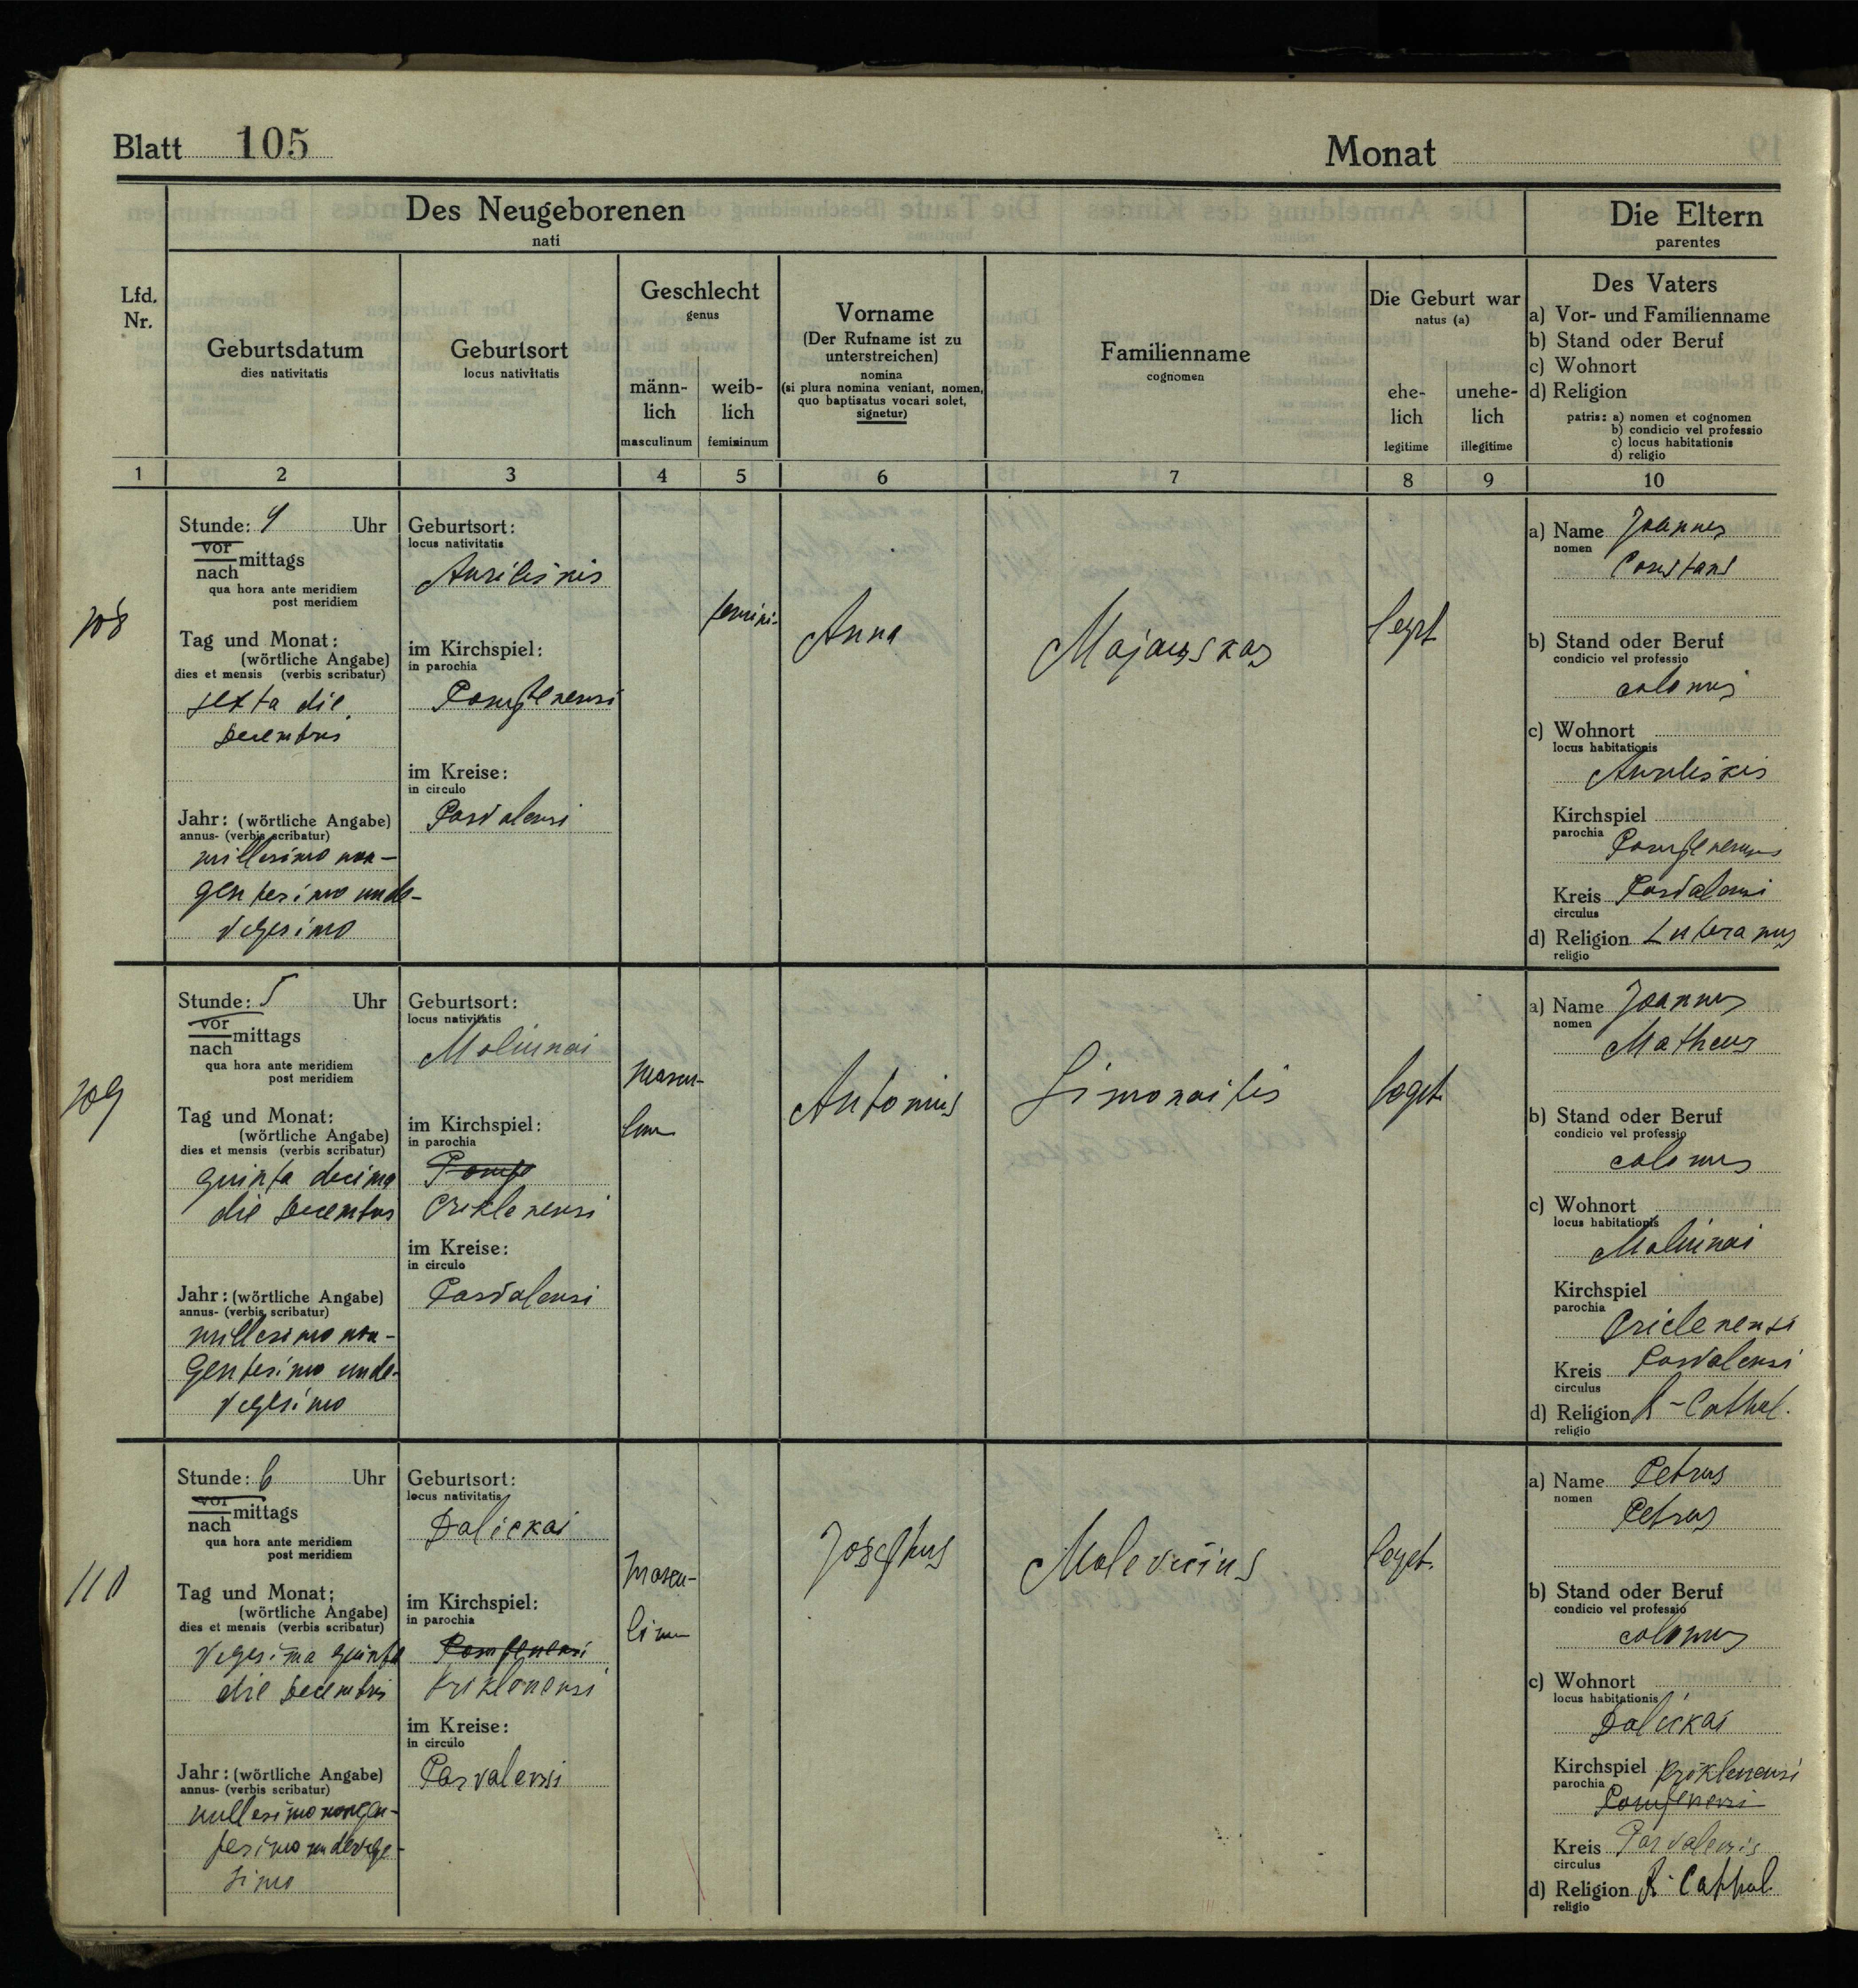 Blatt 105
Monat
Des Neugeborenen
nati
Die Eltern
parentes
Lfd.
Nr.
Geburtsdatum
dies nativitatis
Geburtsort
locus nativitatis
Geschlecht
genus
männ-
lich
masculinum
weib-
lich
femininum
Vorname
(Der Rufname ist zu
unterstreichen)
nomina
(si plura nomina veniant, nomen,
quo baptisatus vocari solet,
signetur)
Familienname
cognomen
Die Geburt war
natus (a)
ehe-
lich
legitime
unehe-
lich
illegitime
Des Vaters
a) Vor- und Familienname
b) Stand oder Beruf
c) Wohnort
d) Religion
patris: a) nomen et cognomen
b) condicio vel professio
c) locus habitationis
d) religio
1 2 3 4 5 6 7 8 9 10
108
Stunde: 9 Uhr
vor
nach mittags
qua hora ante meridiem
post meridiem
Tag und Monat:
(wörtliche Angabe)
dies et mensis (verbis scribatur)
sexta die
Decembris
Jahr: (wörtliche Angabe)
annus- (verbis scribatur)
millesimo non-
gentesimo unde-
vegesimo
Geburtsort:
locus nativitatis
im Kirchspiel:
in parochia
im Kreise:
in circulo
Pasvalensi
femini-
Anna
Majauskas
a) Name Joannes
nomen
Constans
b) Stand oder Beruf
condicio vel professio
colonus
c) Wohnort
locus habitationis
Kirchspiel
parochia
Kreis Pasvalensi
circulus
d) Religion Luteranus
religio
109
Stunde: 5 Uhr
vor
nach mittags
qua hora ante meridiem
post meridiem
Tag und Monat:
(wörtliche Angabe)
dies et mensis (verbis scribatur)
quinta decima
die Decembris
Jahr: (wörtliche Angabe)
annus- (verbis scribatur)
millesimo non-
gentesimo unde-
vegesimo
Geburtsort:
locus nativitatis
Moliunai
im Kirchspiel:
in parochia
Pomp
Criklenensi
im Kreise:
in circulo
Pasvalensi
mascu-
Antonius
Simonaitis
leget.
a) Name Joannes
nomen
Matheus
b) Stand oder Beruf
condicio vel professio
colonus
c) Wohnort
locus habitationis
Moliunai
Kirchspiel
parochia
Criclenensi
Kreis Pasvalensi
circulus
d) Religion R-Cathol.
religio
110
Stunde: 6 Uhr
vor
nach mittags
qua hora ante meridiem
post meridiem
Tag und Monat:
(wörtliche Angabe)
dies et mensis (verbis scribatur)
vegesima quinta
die Decembris
Jahr: (wörtliche Angabe)
annus- (verbis scribatur)
millesimo nongen-
tesimo undevege-
simo
Geburtsort:
locus nativitatis
Dalickai
im Kirchspiel:
in parochia
Pompenensi
Kriklenensi
im Kreise:
in circulo
Pasvalensi
mascu-
Josephus
Malevičius
leget.
a) Name Petrus
nomen
Petrus
b) Stand oder Beruf
condicio vel professio
colonus
c) Wohnort
locus habitationis
Dalickai
Kirchspiel Kriklenensi
parochia
Pompenensi
Kreis Pasvalensis
circulus
d) Religion R-Cathol
religio